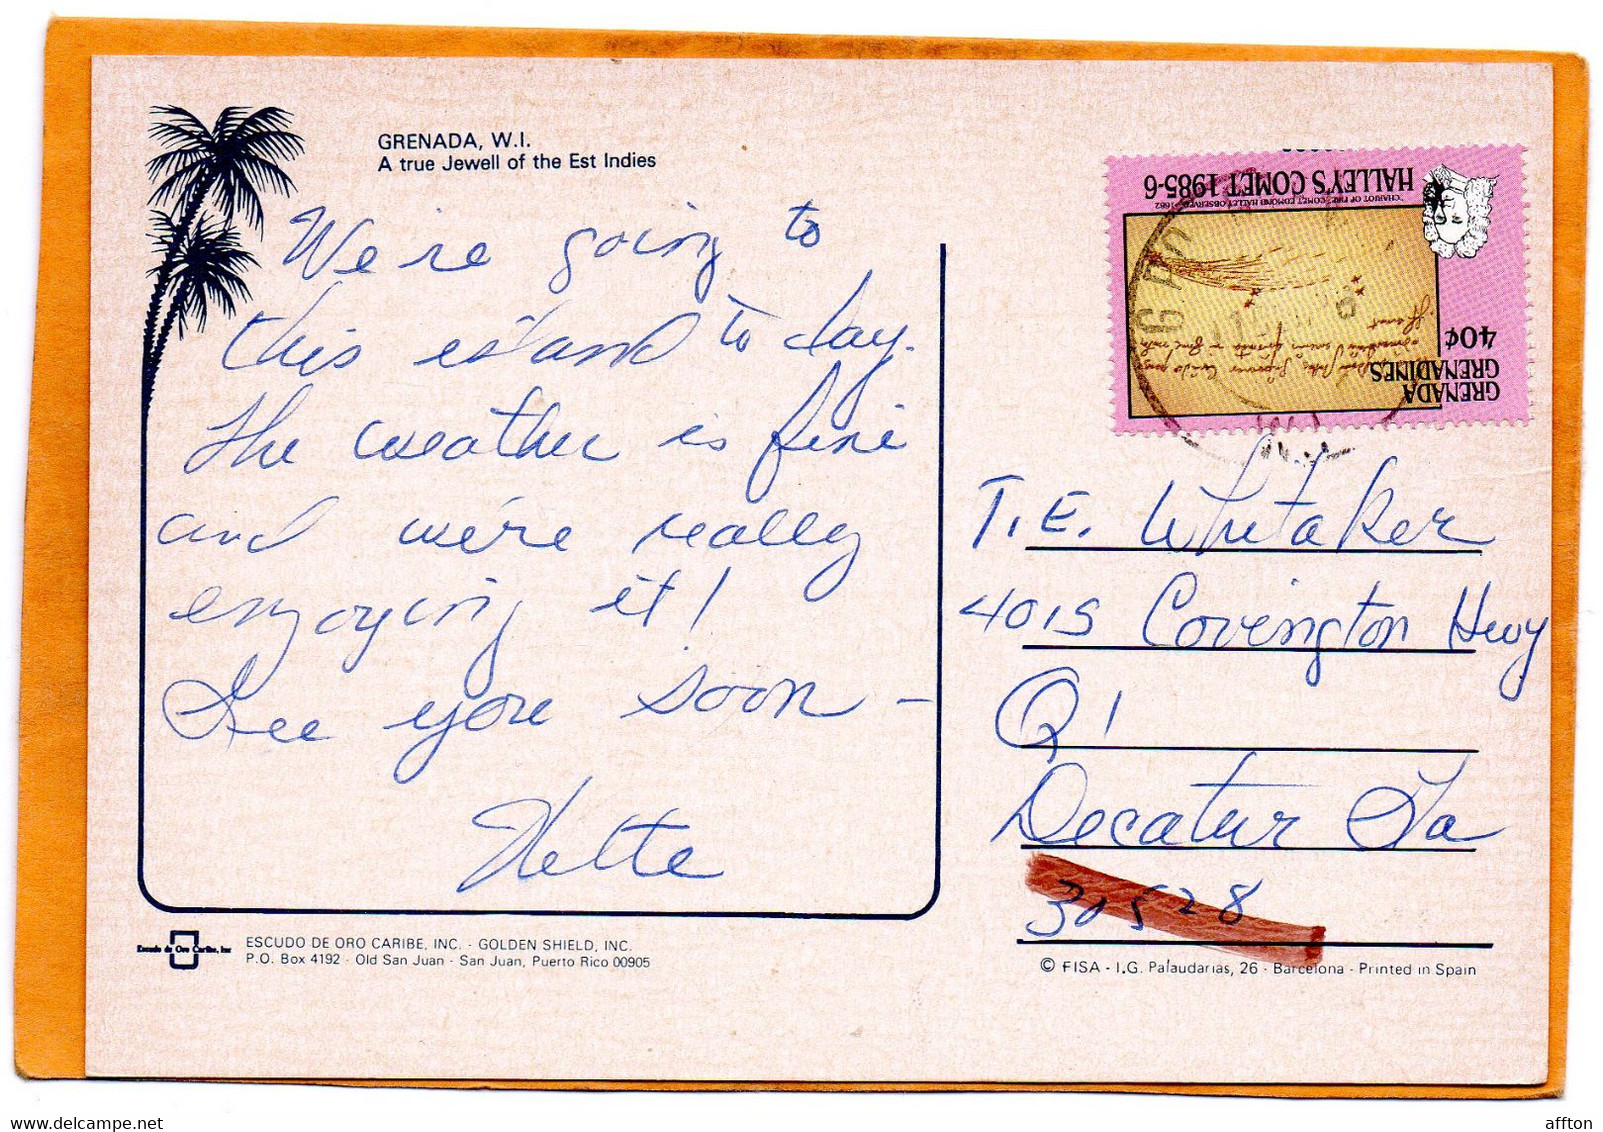 GRENADA, W.I.
A true Jewell of the Est Indies
We're going to
this island to day.
The weather is fine
and we're really
enjoying it!
See you soon –
Nette
Escudo de Oro Caribe, Inc
ESCUDO DE ORO CARIBE, INC. - GOLDEN SHIELD, INC.
P.O. Box 4192 - Old San Juan - San Juan, Puerto Rico 00905
HALLEY'S COMET 1985-6
"CHARIOT OF FIRE" COMET EDMOND HALLEY OBSERVED - 1682
40¢
GRENADA
GRENADINES
T.E. Whitaker
4015 Covington Hwy
Q1
Decatur Ga
30528
© FISA - I.G. Palaudarias, 26 - Barcelona - Printed in Spain
affton